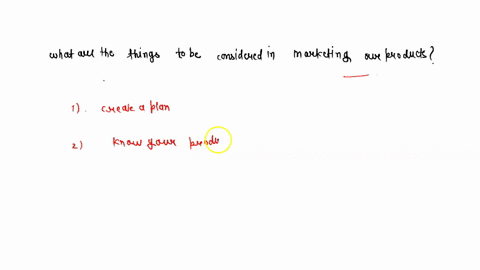 what are the things to be considered in marketing our products?
1). create a plan
2) know your produ